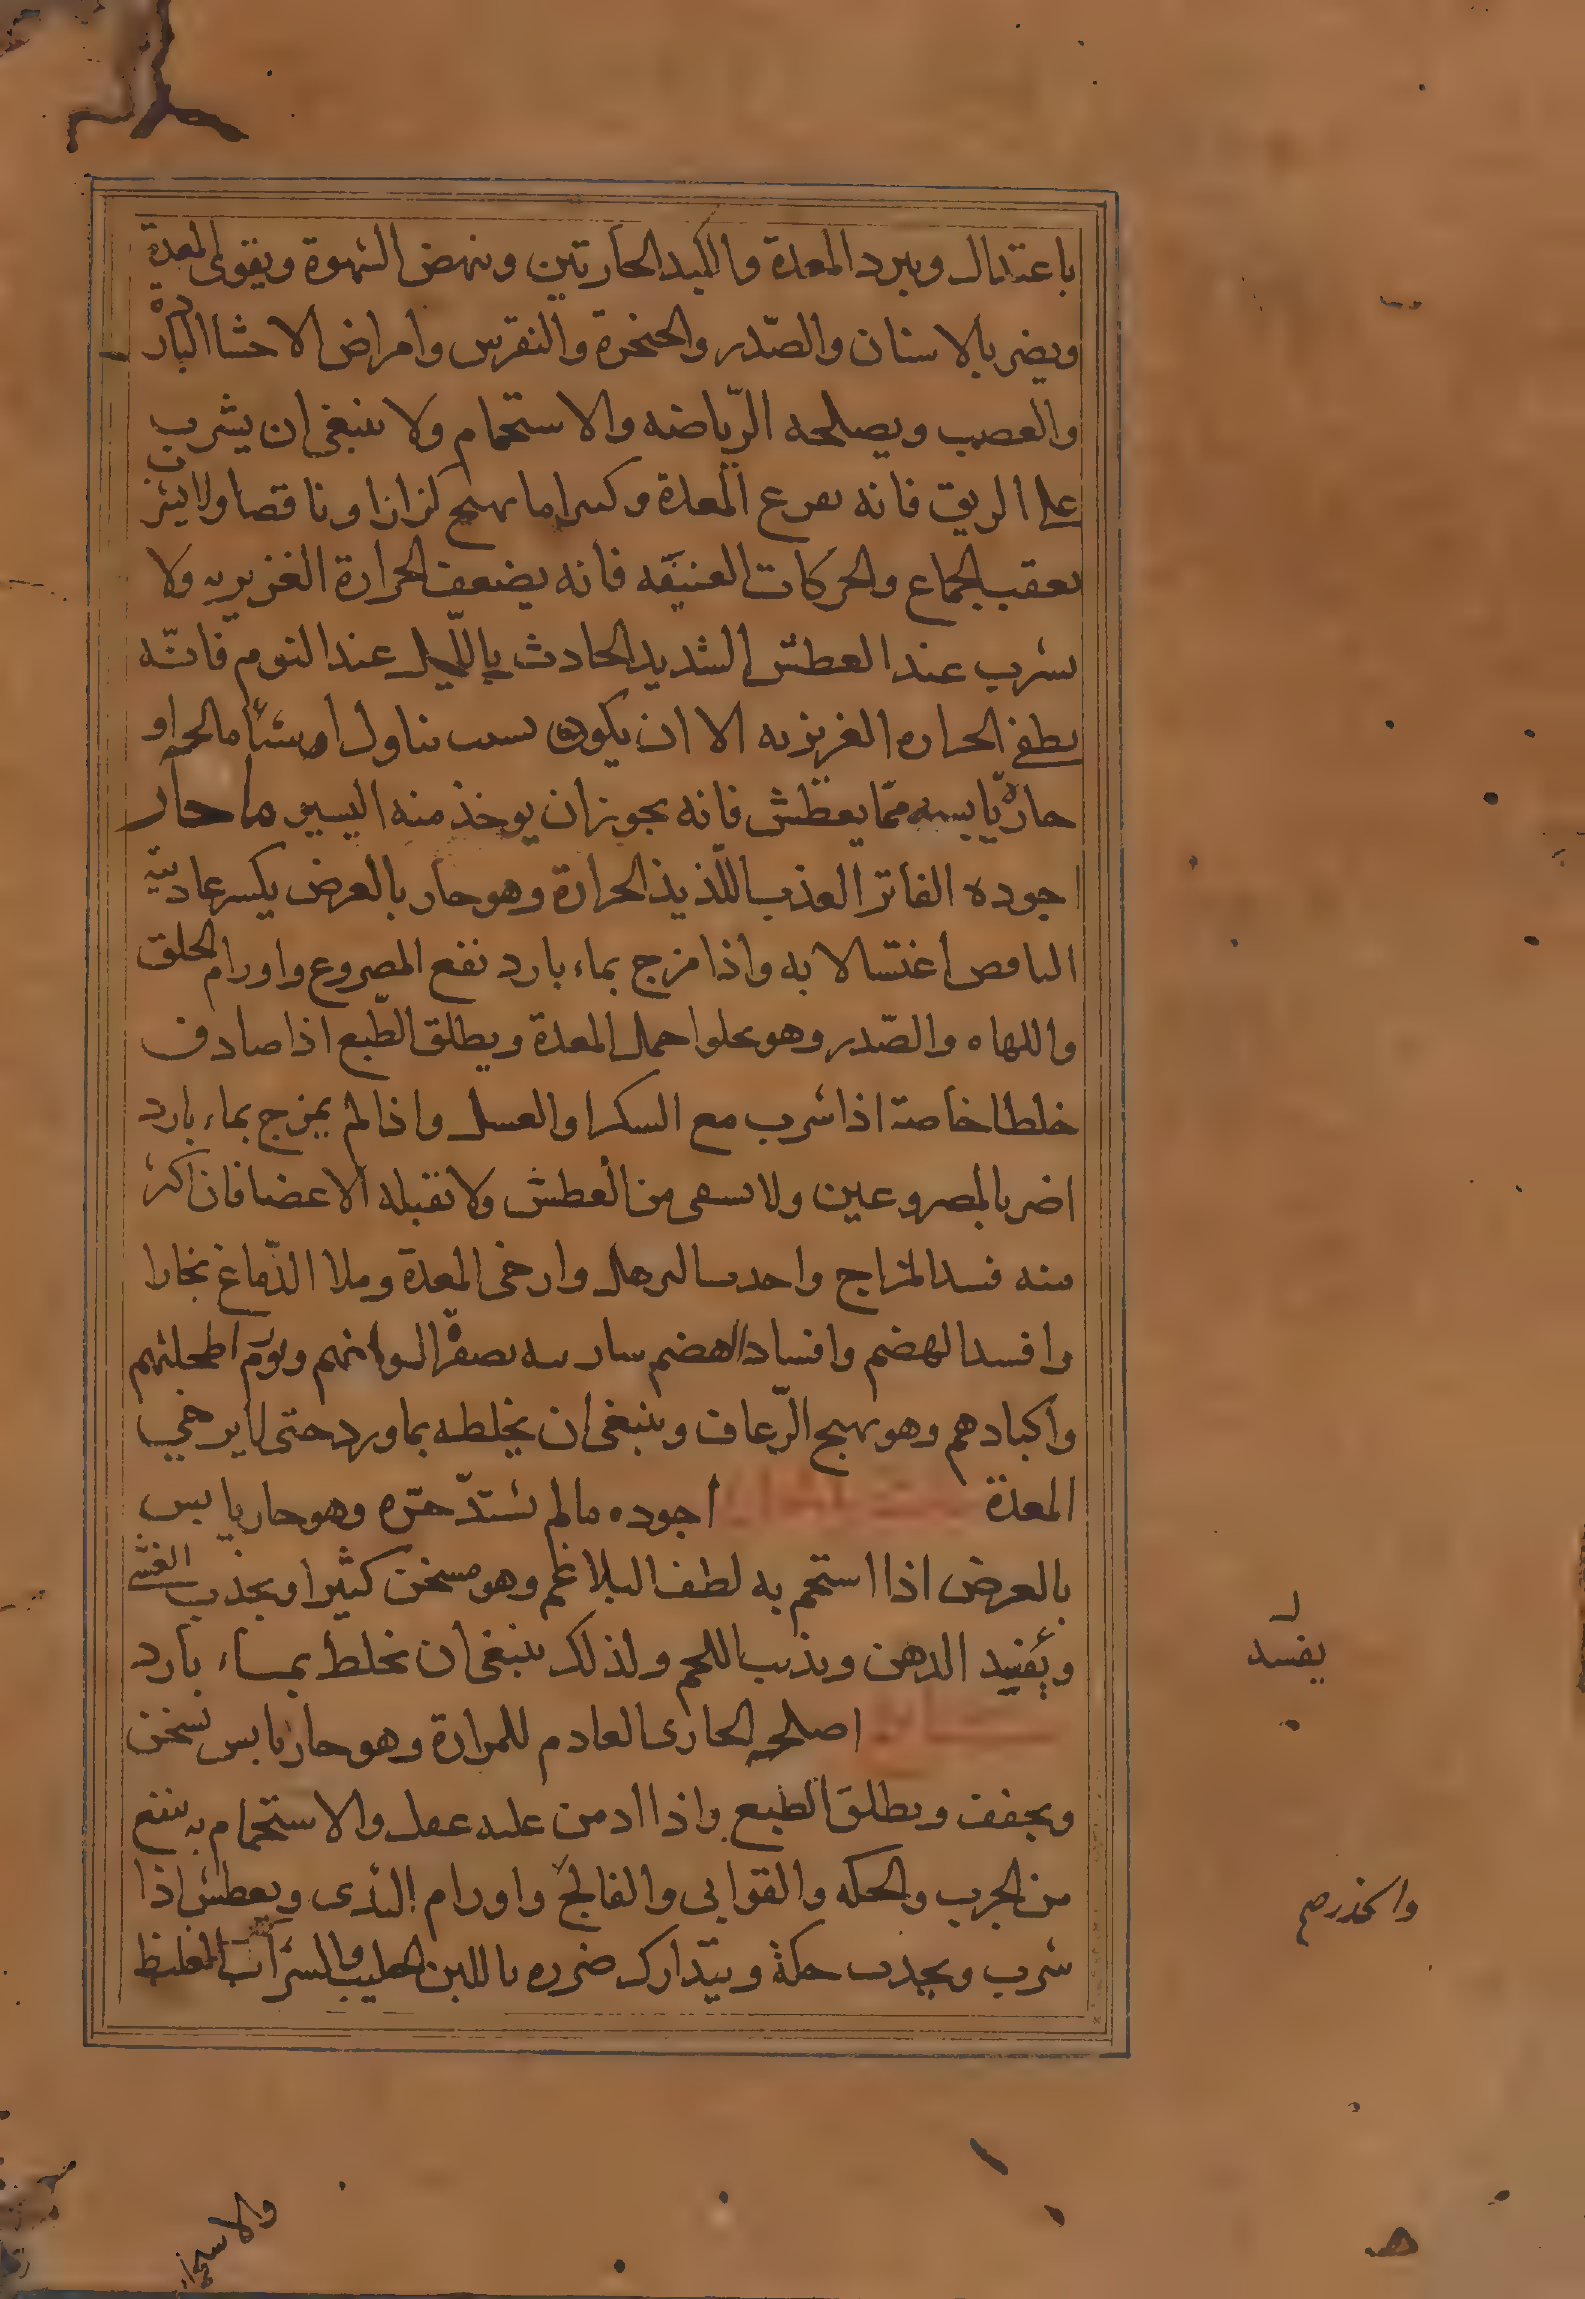 باعتدال ويبرد المعدة والكبد الحارتين وينهض الشهوة ويقوى المعدة
ويضر بالاسنان والصّدر والحنجرة والنقرس وامراض الاحشا الباردة
والعصب ويصلحه الرّياضه والاستحمام ولا ينبغى ان يشرب
على الريق فانه يقرع المعدة وكثيرا ما يهيج كزازا وناقصا ولا يشرب
بعقب الجماع والحركات العنيفه فانه يضعف الحرارة الغزيريه ولا
يشرب عند العطش الشديد الحادث باللّيل عند النوم فانّه
يطفى الحراره الغريزيه الا ان يكون بسبب تناول اشيئاً مالحه او
حارّه يابسه ممّا يعطّش فانه يجوز ان يوخذ منه اليسير ما حار
اجوده الفاتر العذب اللّذيذ الحرارة وهو حار بالعرض يكسر عاديّة
النافض اغتسالا به واذا مزج بماء بارد نفع المصروع واورام الحلق
واللهاه والصّدر وهو يحلوا حمل المعدة ويطلق الطّبع اذا صادف
خلطا خاصة اذا شرب مع السكر او العسل واذا لم يمزج بماء بارد
اضر بالمصروعين ولا يشفى من العطش ولا تقبله الاعضا فان اكثر
منه فسد المزاج واحدث الترهل وارخى المعدة وملا الدّماغ بخارا
وافسد الهضم وافساد الهضم شاربيه يصفرّ الوانهم ويورّم اطحلتهم
واكبادهم وهو يهيج الرّعاف وينبغى ان يخلطه بماورد حتى لا يرخي
المعدة اجوده مالم تشتدّ حرّه وهو حار يابس
بالعرض اذا استحم به لطف البلاغم وهو مسخن كثيرا ويجذب الغشى
ويفسد الدهن ويذيب اللحم ولذلك ينبغى ان يخلط بماء بارد
اصلحه الجارى العادم للمرارة وهو حار يابس يسخن
ويجفف ويطلق الطبع واذا ادمن عليه عقل والاستحمام به ينفع
من الجرب والحكه والقوابى والفالج واورام الثدى ويعطش اذا
شرب ويجدب حكة ويتدارك ضرره باللبن الحليب والشراب الغليظ
يفسد
والخدر صح